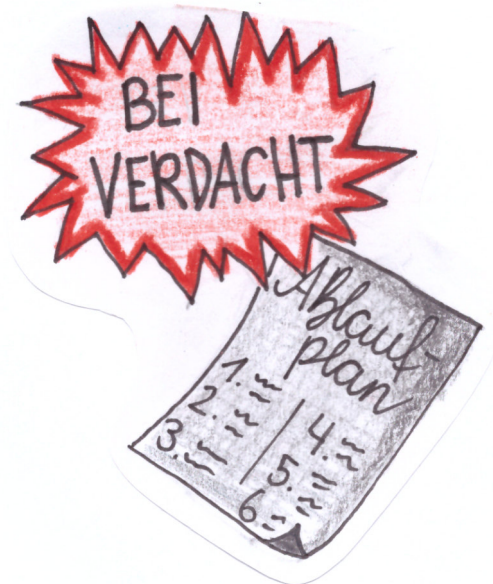 BEI
VERDACHT
Ablauf-
plan
1.
2.
3.
4.
5.
6.